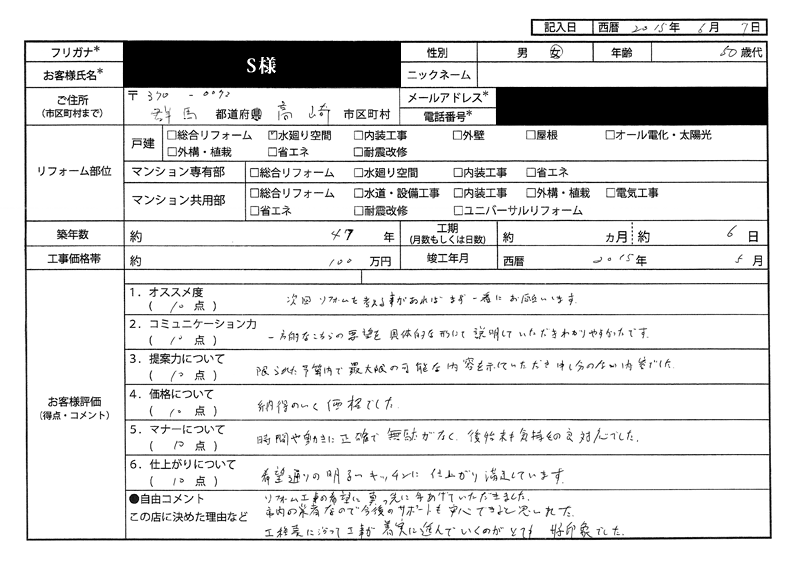 記入日 西暦 2015年 6月 7日
フリガナ* 性別 男 女 年齢 50歳代
お客様氏名* S様 ニックネーム
ご住所 〒370-0072 メールアドレス*
(市区町村まで) 群馬 都道府県 高崎 市区町村 電話番号*
リフォーム部位 戸建 □総合リフォーム ☑水廻り空間 □内装工事 □外壁 □屋根 □オール電化・太陽光
□外構・植栽 □省エネ □耐震改修
マンション専有部 □総合リフォーム □水廻り空間 □内装工事 □省エネ
マンション共用部 □総合リフォーム □水道・設備工事 □内装工事 □外構・植栽 □電気工事
□省エネ □耐震改修 □ユニバーサルリフォーム
築年数 約 47 年 工期 (月数もしくは日数) 約 カ月 約 6 日
工事価格帯 約 100 万円 竣工年月 西暦 2015年 5月
お客様評価
(得点・コメント)
1. オススメ度
( 10 点 ) 次回リフォームを考える事があればまず一番にお願いします.
2. コミュニケーション力
( 10 点 ) 一方的なこちらの要望を具体的な形にて説明していただきわかりやすかったです.
3. 提案力について
( 10 点 ) 限られた予算内で最大限の可能な内容を示していただき申し分のない内容でした.
4. 価格について
( 10 点 ) 納得のいく価格でした.
5. マナーについて
( 10 点 ) 時間や動きに正確で無駄がなく、後始末も気持ちの良い対応でした.
6. 仕上がりについて
( 10 点 ) 希望通りの明るいキッチンに仕上がり満足しています.
●自由コメント
この店に決めた理由など
リフォーム工事の希望に真っ先に手あげていただきました.
市内の業者なので今後のサポートも安心できると思われた.
工程表に沿って工事が着実に進んでいくのがとても好印象でした.